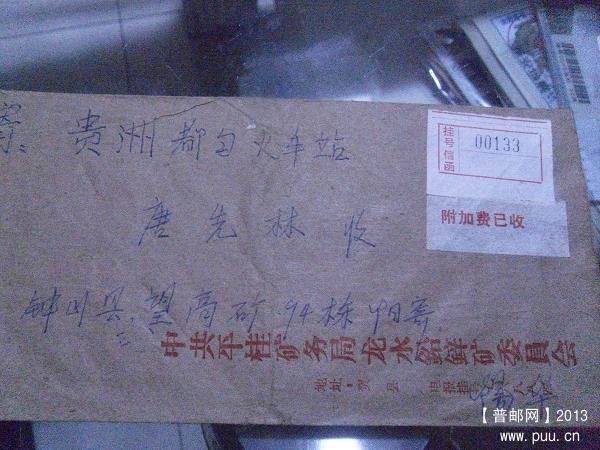 寄: 贵州都匀火车站
挂号信函
00133
附加费已收
唐先林 收
钟山县望高矿94栋
中共平桂矿务局龙水
矿委員会
地址:贺县
电报挂
【普邮网】2013
www.puu.cn